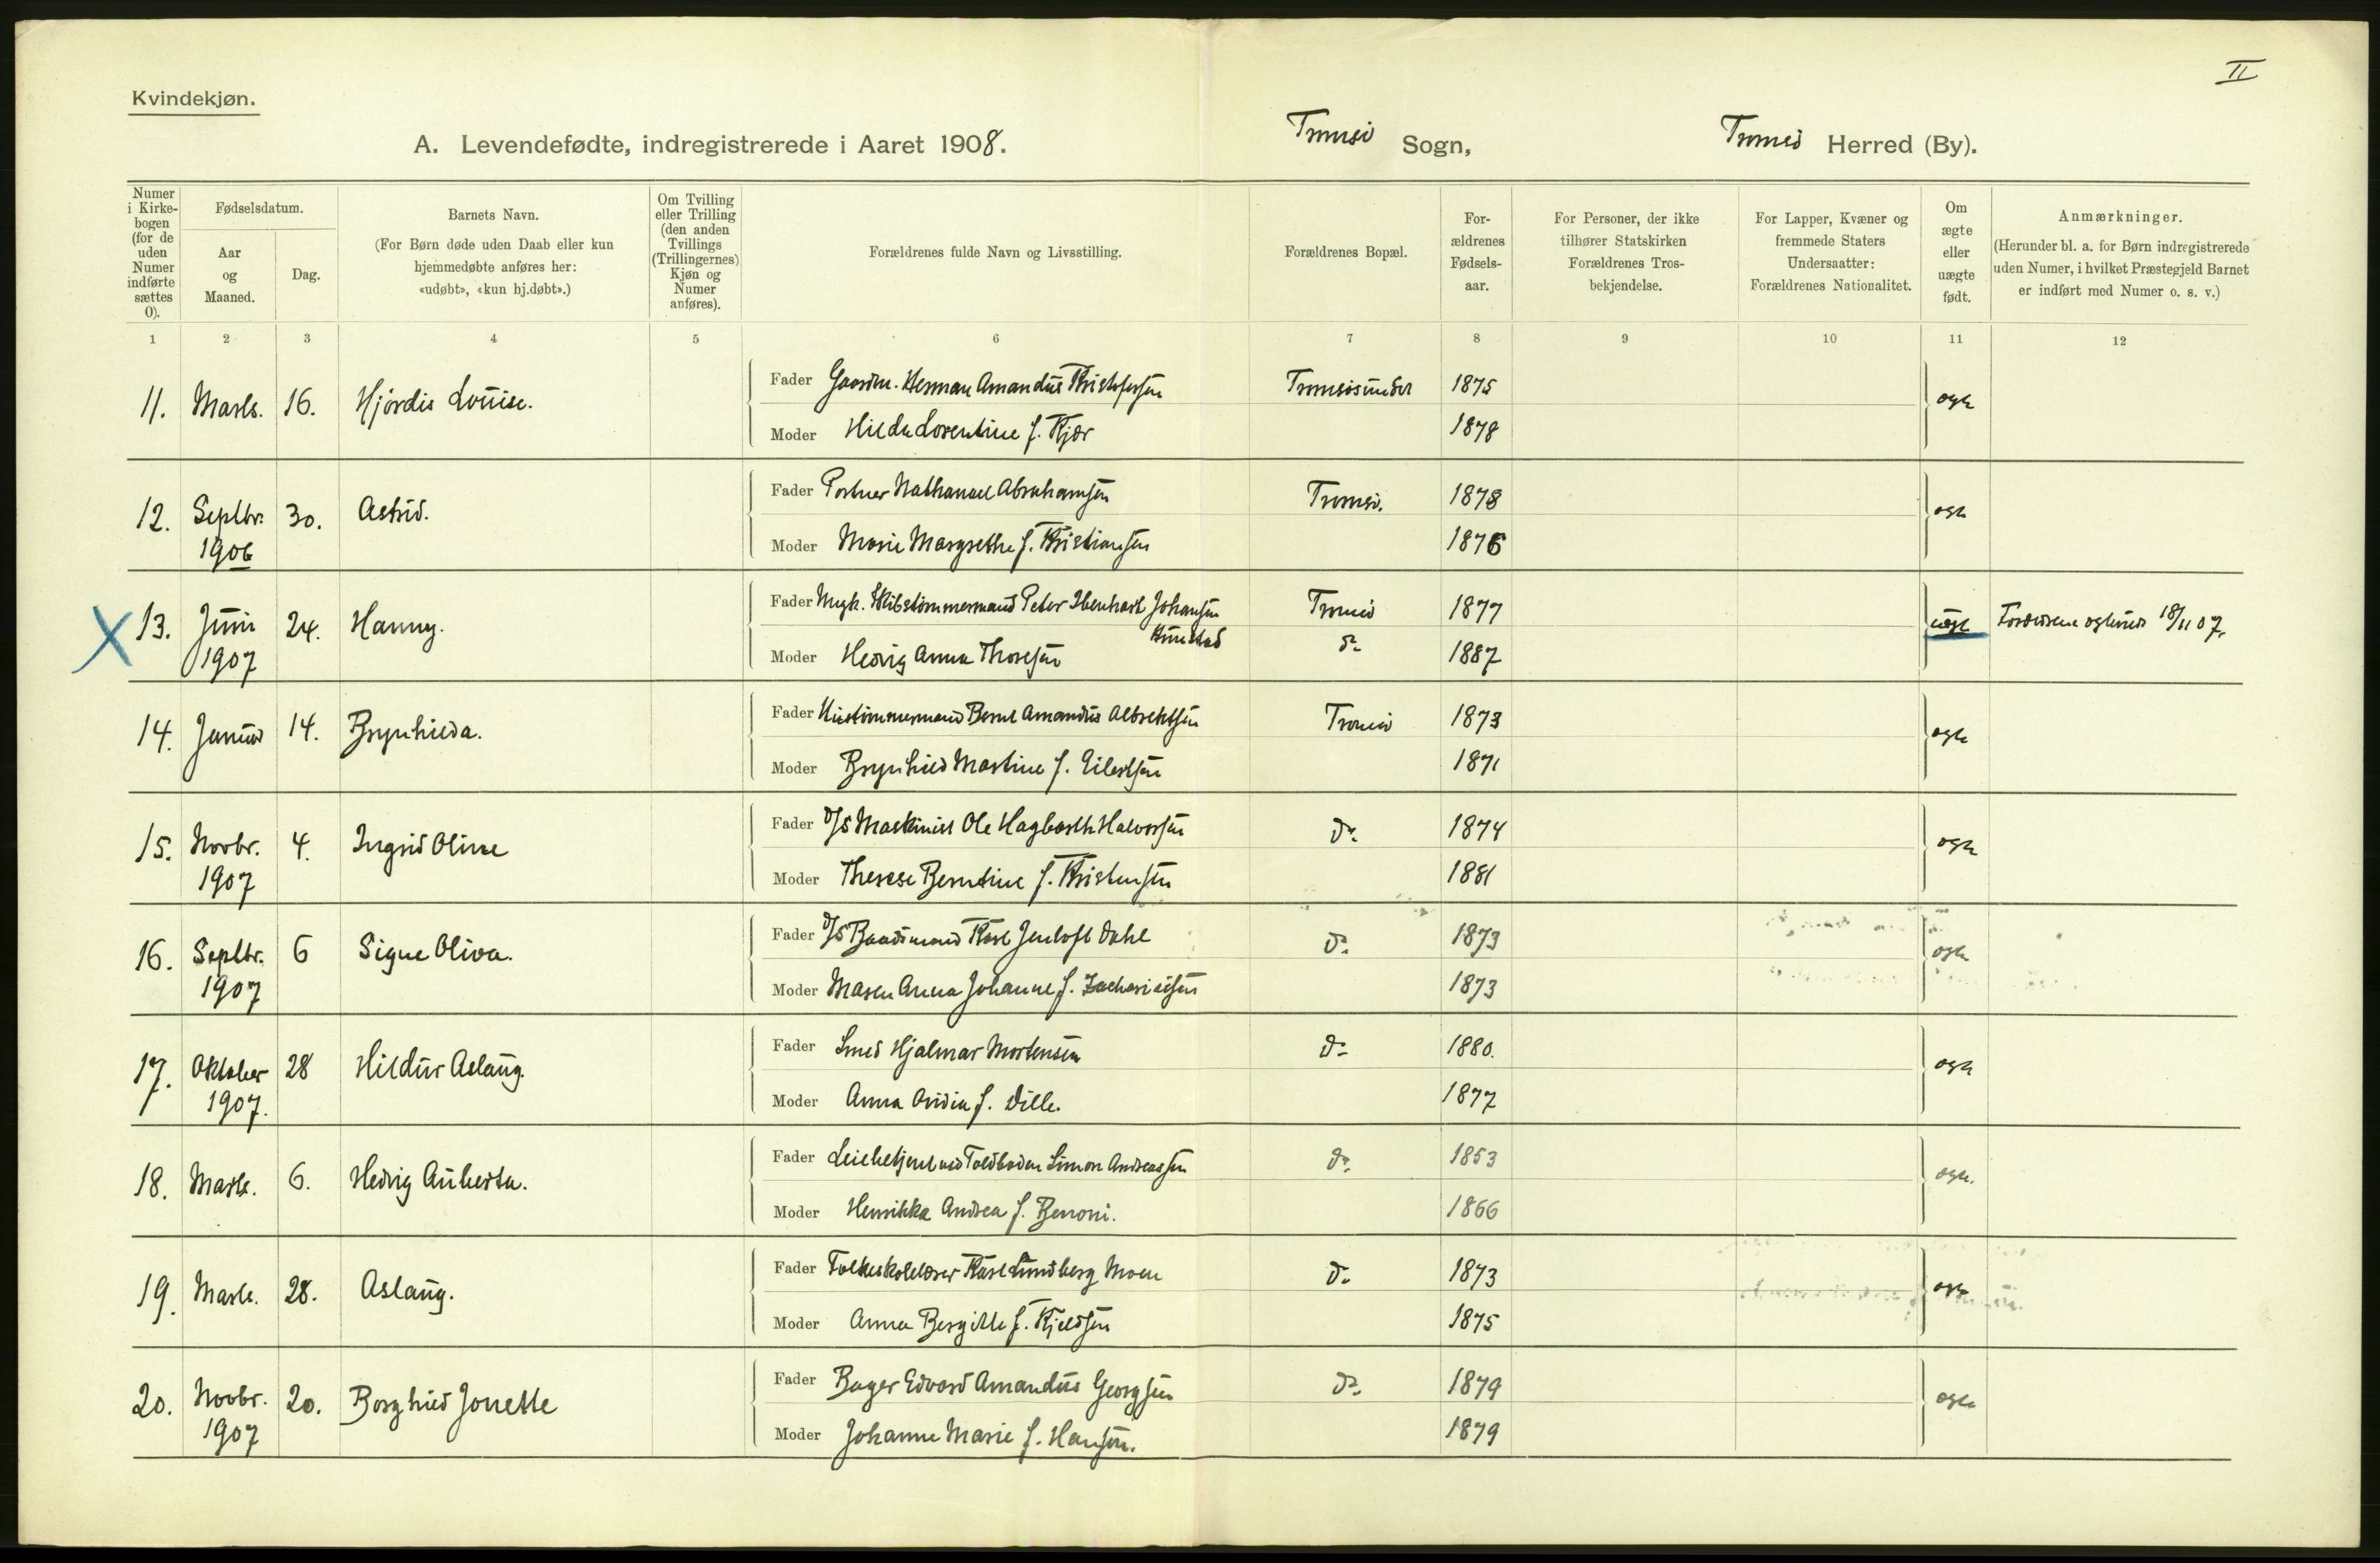 II
Kvindekjøn.
A. Levendefødte, indregistrerede i Aaret 1908.
Tromsø Sogn,
Tromsø Herred (By).
Numer i Kirkebogen (for de uden Numer indførte sættes 0).
Fødselsdatum.
Aar og Maaned.
Dag.
Barnets Navn.
(For Børn døde uden Daab eller kun hjemmedøbte anføres her: «udøbt», «kun hj.døbt».)
Om Tvilling eller Trilling (den anden Tvillings (Trillingernes) Kjøn og Numer anføres).
Forældrenes fulde Navn og Livsstilling.
Forældrenes Bopæl.
Forældrenes Fødselsaar.
For Personer, der ikke tilhører Statskirken Forældrenes Trosbekjendelse.
For Lapper, Kvæner og fremmede Staters Undersaatter: Forældrenes Nationalitet.
Om ægte eller uægte født.
Anmærkninger.
(Herunder bl. a. for Børn indregistrerede uden Numer, i hvilket Præstegjeld Barnet er indført med Numer o. s. v.)
1 2 3 4 5 6 7 8 9 10 11 12
11. Marts. 16. Hjørdis Louise. Fader Gaardm. Herman Amandus Kristofersen Tromsøsundet 1875 ægte
Moder Hilda Lorentine f. Kjær 1878
12. Septbr. 1906 30. Astrid. Fader Portner Nathanael Abrahamsen Tromsø. 1878 ægte
Moder Marie Margrethe f. Kristiansen 1876
13. Juni 1907 24. Hanny. Fader Ungk. Skibstømmermand Peter Ibenhart Johansen Tromsø 1877 uægte Forældrene ægteviet 18/11 07.
Moder Hedvig Anna Thoresen do 1887
14. Januar 14. Brynhilda. Fader Hustømmermand Bernt Amandus Albrektsen Tromsø 1873 ægte
Moder Brynhild Martine f. Eilertsen 1871
15. Novbr. 1907 4. Ingrid Oline Fader D/S Maskinist Ole Hagbarth Halvorsen do. 1874 ægte
Moder Therese Berntine f. Kristensen 1881
16. Septbr. 1907 6 Signe Oliva. Fader D/S Baadsmand Karl Jentoft Dahl do. 1873 ægte
Moder Maren Anna Johanne f. Zachariassen 1873
17. Oktober 1907. 28 Hildur Aslaug. Fader Smed Hjalmar Mortensen do 1880. ægte
Moder Anna Ovidia f. Dille. 1877
18. Marts. 6. Hedvig Auberta. Fader Toldboden Simon Andreassen do. 1853 ægte.
Moder Henrikka Andrea f. Benoni. 1866
19. Marts. 28. Aslaug. Fader Folkeskolelærer Karl Lundberg Moen do. 1873 ægte
Moder Anna Bergitte f. Kjeldsen 1875
20. Novbr. 1907 20. Borghild Jonette Fader Bager Edvard Amandus Georgsen do. 1879 ægte
Moder Johanne Marie f. Hansen. 1879